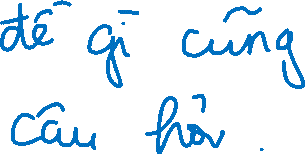 đế gì cũng
câu hỏi.